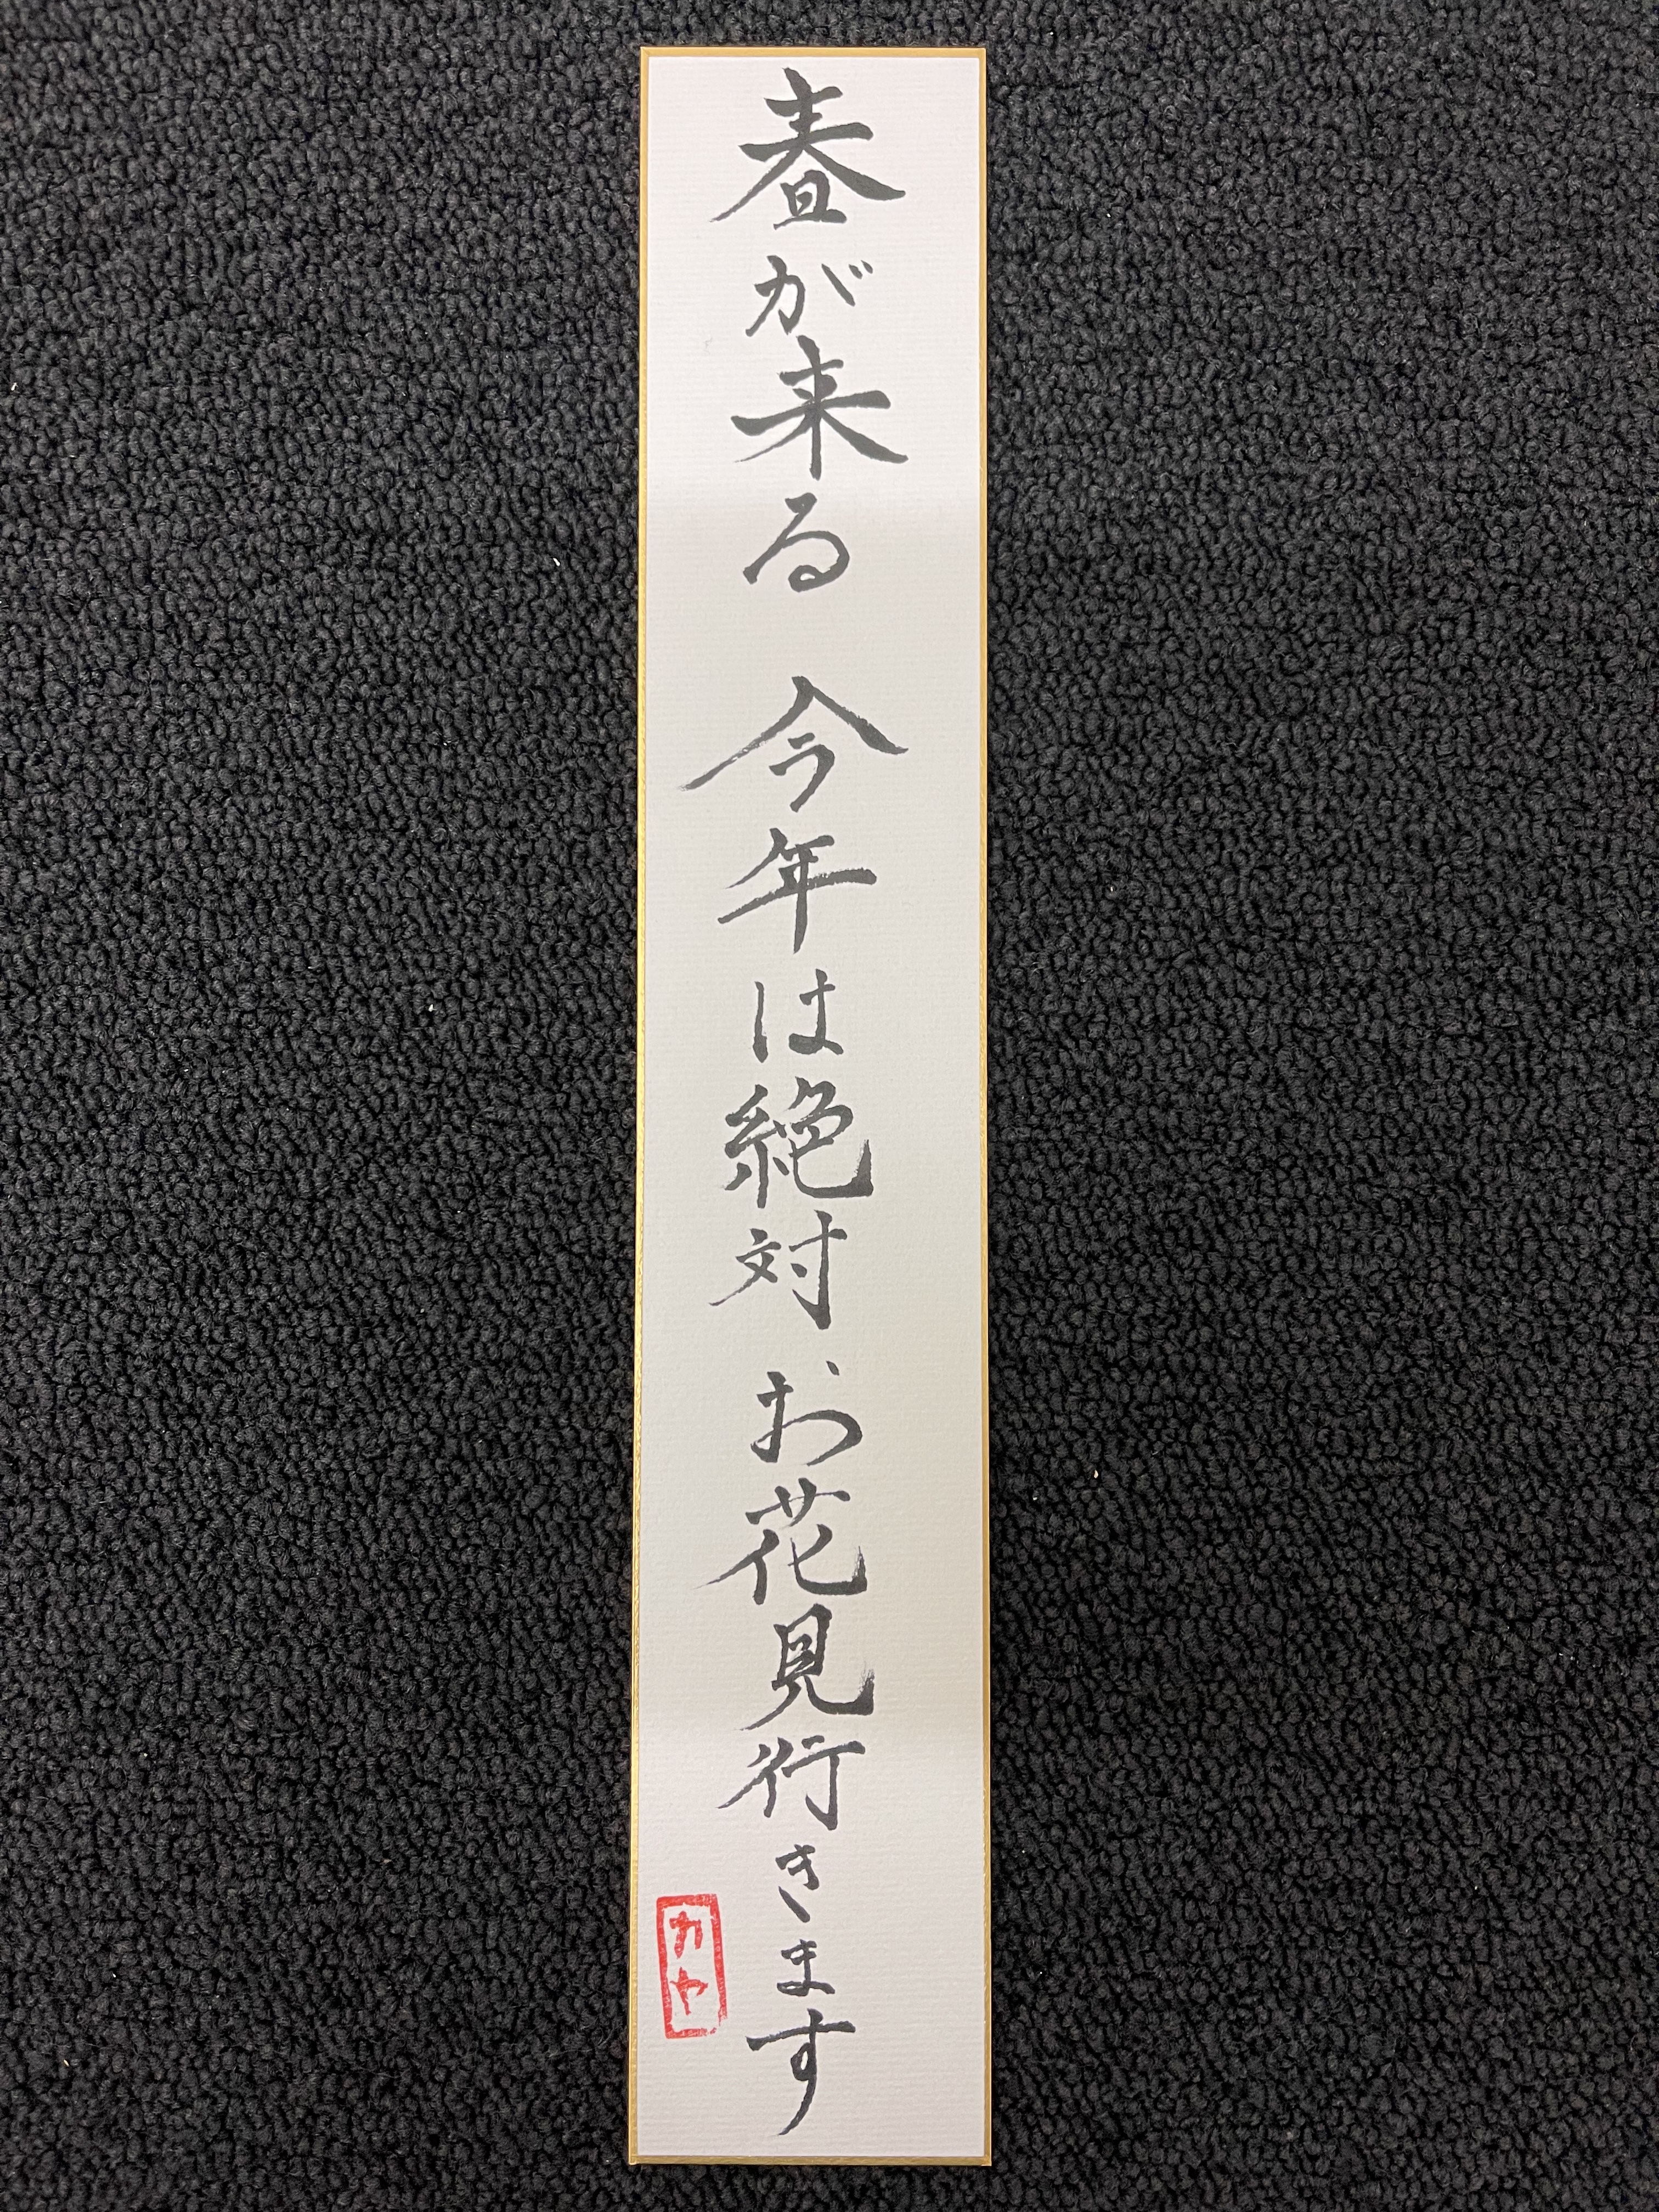 春が来る 今年は絶対 お花見行きます
カヤ